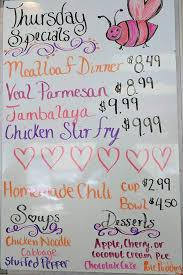 Thursday
Specials
Meatloaf Dinner $8.49
Veal Parmesan $8.99
Jambalaya $9.99
Chicken Stir fry $9.99
Homemade Chili Cup $2.99
Bowl $4.50
Soups
Chicken Noodle
Cabbage
Stuffed Pepper
Desserts
Apple, Cherry, or
Coconut Cream Pie
Chocolate Cake
Rice Pudding